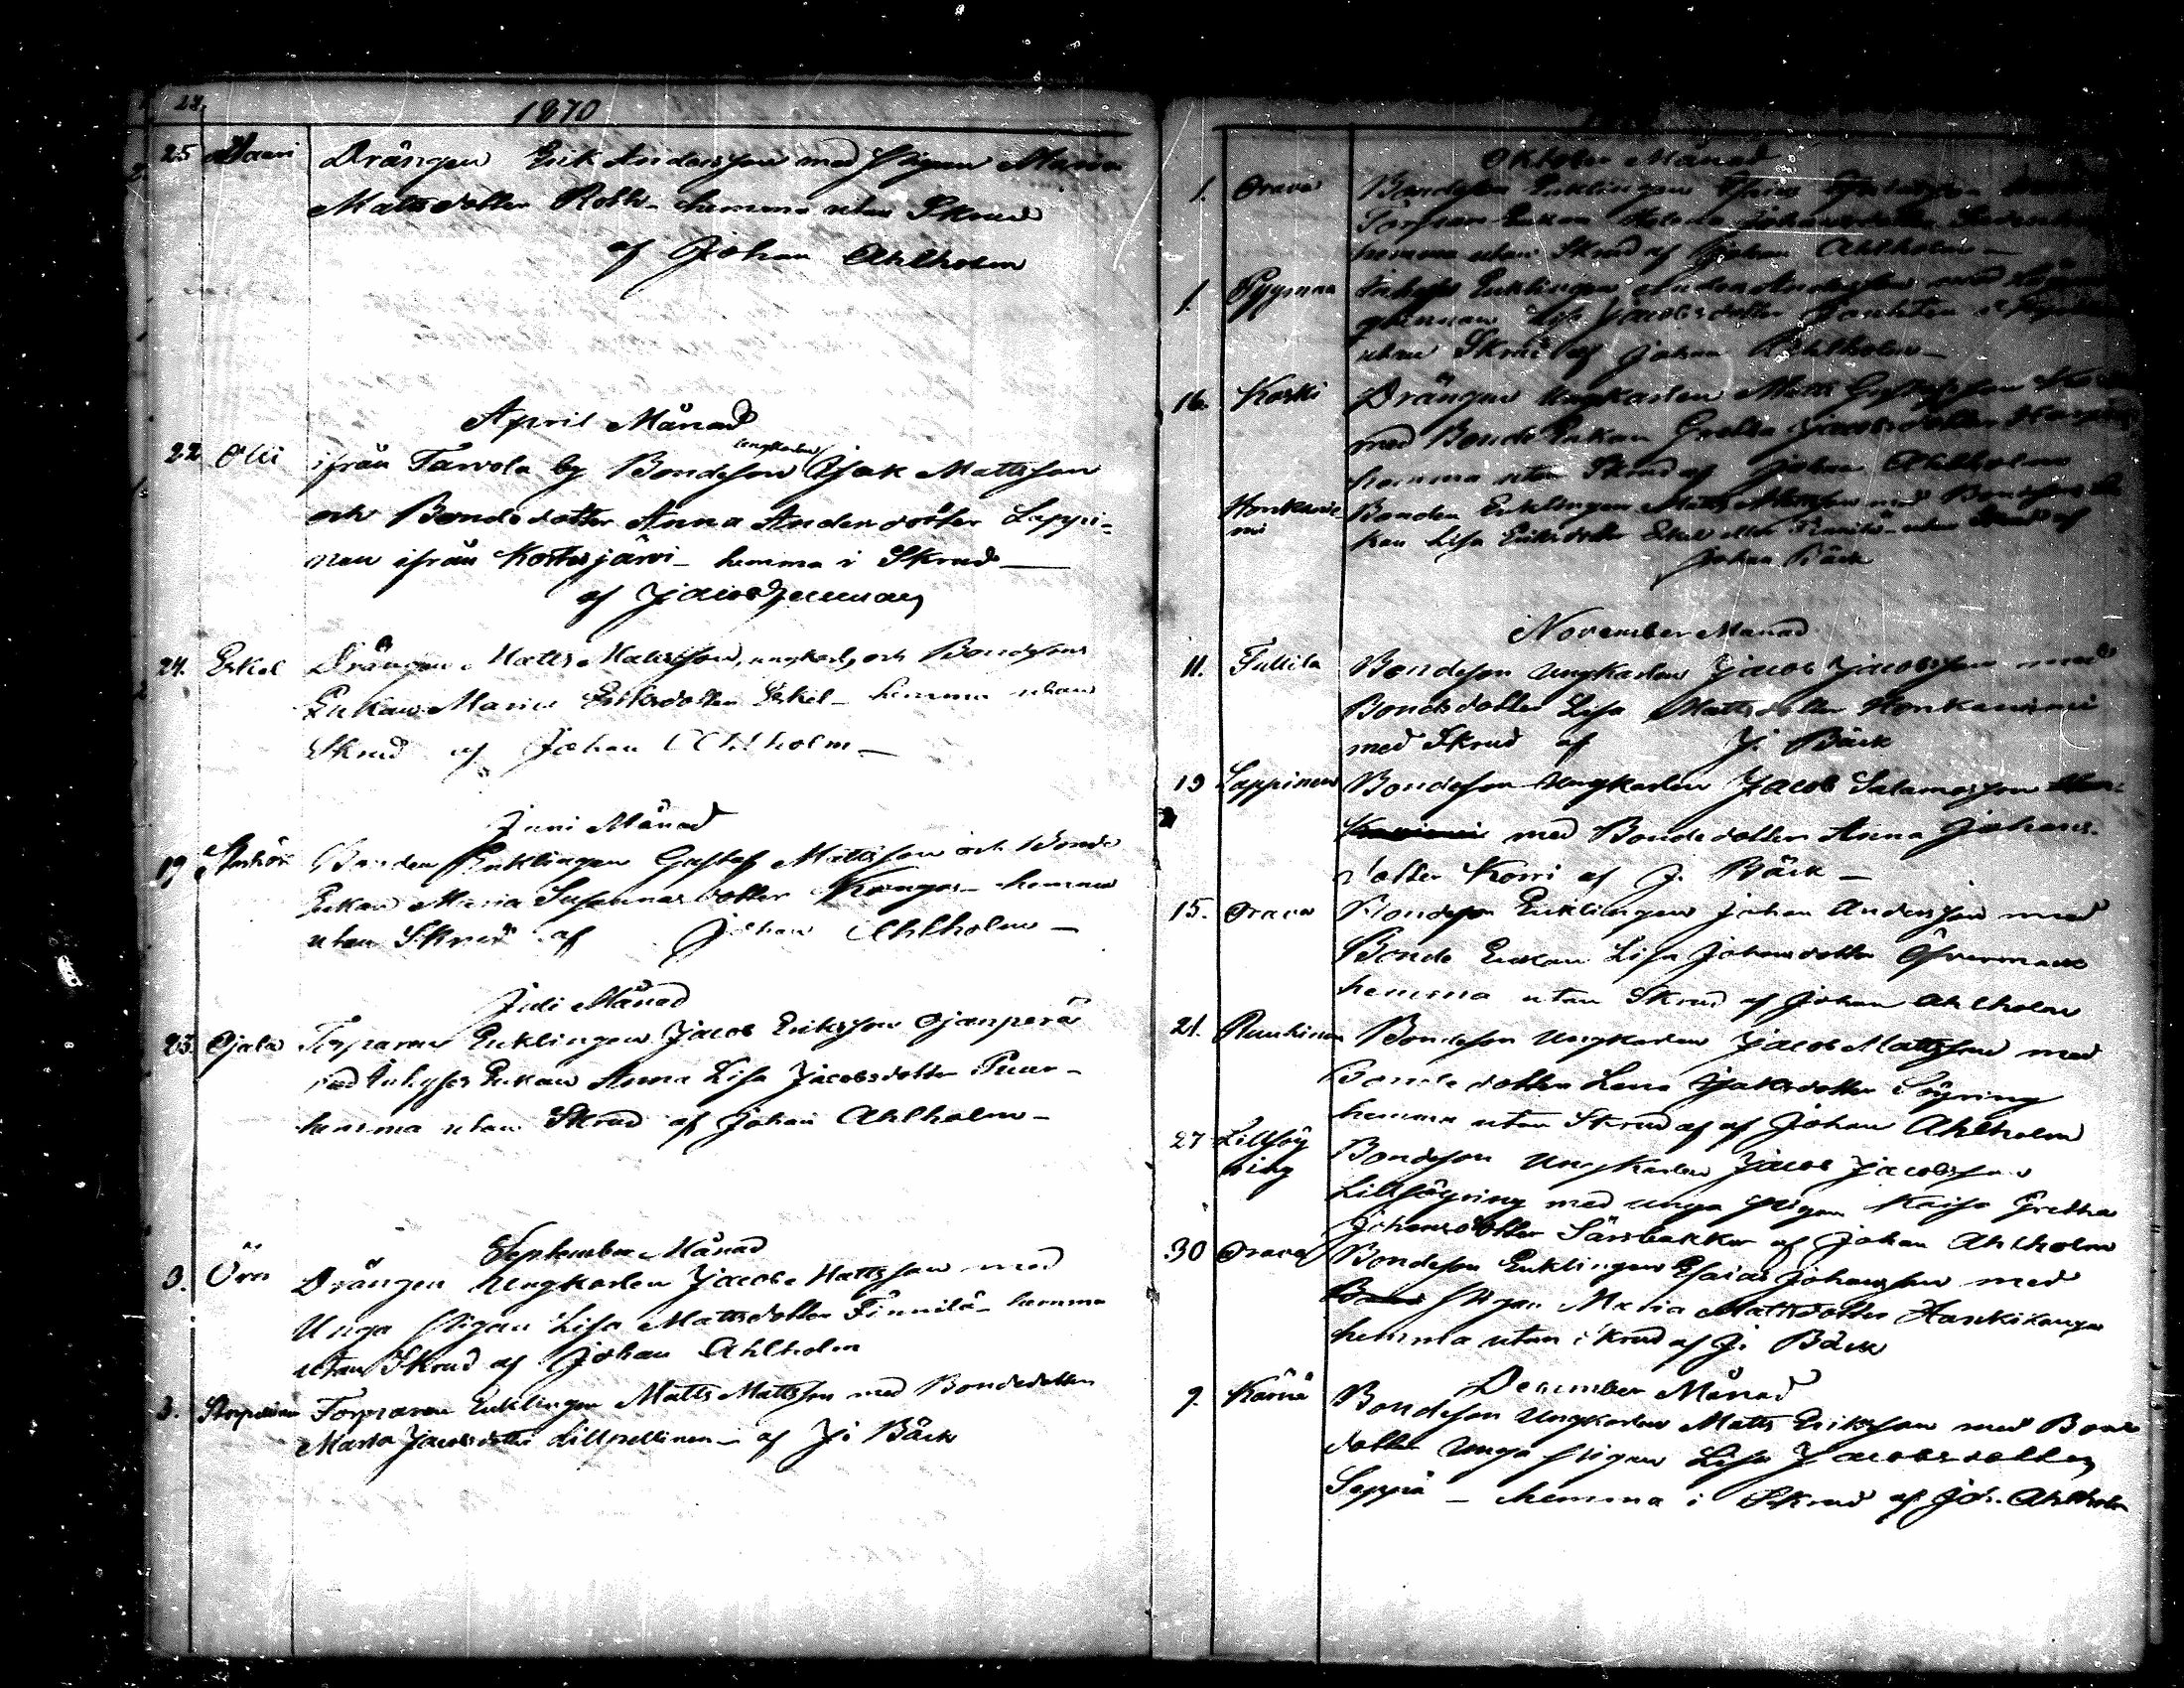 1870
25 Drängen Erik Andersson med Pigan Maria
Mattsdotter Roth - hemma utan Skrud
af Johan Ahlholm
April Månad
ungkarlen
22 Olli ifrån Tarvola by Bondeson Isak Mattsson
och Bondedotter Anna Andersdotter Lappi-
nen ifrån Kortesjärvi - hemma i Skrud
af Jacob
24. Eskel Drängen Matts Mattsson, ungkarl, och Bondesons
Enkan Maria Eriksdotter Eskel - hemma utan
Skrud af Johan Ahlholm -
Juni Månad
19 Bonden Enklingen Gustaf Mattsson och Bonde
Enkan Maria Susannasdotter Kangas - hemma
utan Skrud af Johan Ahlholm -
Juli Månad
23. Ojala Torparen Enklingen Jacob Eriksson Ojanperä
med Inhyses Enkan Anna Lisa Jacobsdotter Puur -
hemma utan Skrud af Johan Ahlholm -
September Månad
3. Örn Drängen Ungkarlen Jacob Mattsson med
Unga Pigan Lisa Mattsdotter Finnilä - hemma
utan Skrud af Johan Ahlholm
3. Torparen Enklingen Matts Mattsson med Bondedotter
Maria Jacobsdotter Lillpellinen - af J. Bäck
Oktober Månad
1. Orava Bondeson Enklingen
Enkan Helena Johansdotter
hemma utan Skrud af Johan Ahlholm -
1. Pyymaa Inhyses Enklingen Anders Andersson med
qvinnan Lisa Jacobsdotter
utan Skrud af Johan Ahlholm -
16. Koski Drängen Ungkarlen Matts Gustafsson
med Bonde Enkan Gretha Jacobsdotter
hemma utan Skrud af Johan Ahlholm
Honkanie- Bonden Enklingen Matts Mattsson med Bondesons En
mi kan Lisa Eriksdotter Eskel eller Finnilä - utan Skrud af
Johan Bäck
November Månad
11. Tullila Bondeson Ungkarlen Jacob Jacobsson med
Bondedotter Lisa Mattsdotter Honkaniemi
med Skrud af J. Bäck
19 Lappinen Bondeson Ungkarlen Jacob Salamosson
med Bondedotter Anna Johans-
dotter Korri af J. Bäck -
15. Orava Bondeson Enklingen Johan Andersson med
Bonde Enkan Lisa Johansdotter Öfvermark
hemma utan Skrud af Johan Ahlholm
21. Ruuhinen Bondeson Ungkarlen Jacob Mattsson med
Bondedotter Lena Isaksdotter Söyring
hemma utan Skrud af af Johan Ahlholm
27 Lillsöy Bondeson Ungkarlen Jacob Jacobsson
ring Lillsöyring med unga Pigan Kaisa Gretha
Johansdotter Särsbakker af Johan Ahlholm
30 Orava Bondeson Enklingen Esaias Johansson med
Pigan Maria Mattsdotter Hankikangas
hemma utan Skrud af J. Bäck
December Månad
9. Kärnä Bondeson Ungkarlen Matts Eriksson med Bonde
dotter Unga Pigan Lisa Jacobsdotter
Seppä - hemma i Skrud af Joh. Ahlholm